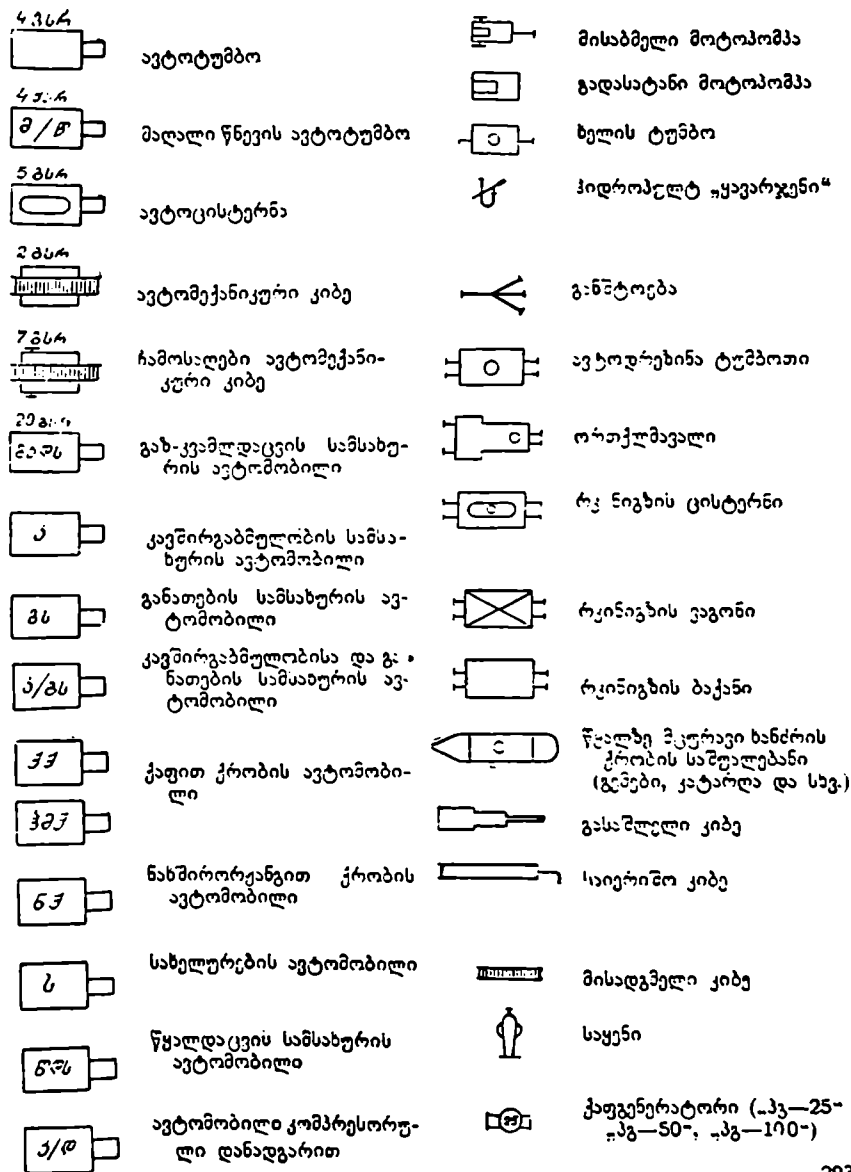 4 გსრ
ავტოტუმბო
მ/წ
მაღალი წნევის ავტოტუმბო
5 გსრ
ავტოცისტერნა
2 გსრ
ავტომექანიკური კიბე
7 გსრ
ჩამოსაღები ავტომექანი-
კური კიბე
გაზ-კვამლდაცვის სამსახუ-
რის ავტომობილი
კ
კავშირგაბმულობის სამსა-
ხურის ავტომობილი
გს
განათების სამსახურის ავ-
ტომობილი
კ/გს
კავშირგაბმულობისა და გა-
ნათების სამსახურის ავ-
ტომობილი
ქქ
ქაფით ქრობის ავტომობი-
ლი
ნქ
ნახშირორჟანგით ქრობის
ავტომობილი
ს
სახელურების ავტომობილი
წდს
წყალდაცვის სამსახურის
ავტომობილი
კ/დ
ავტომობილი კომპრესორუ-
ლი დანადგარით
მისაბმელი მოტოპომპა
გადასატანი მოტოპომპა
ხელის ტუმბო
ჰიდროპულტ „ყავარჯენი“
განშტოება
ავტოდრეზინა ტუმბოთი
ორთქლმავალი
რკინიგზის ცისტერნი
რკინიგზის ვაგონი
რკინიგზის ბაქანი
წყალზე მცურავი ხანძრის
ქრობის საშუალებანი
(გემები, კატარღა და სხვ.)
გასაშლელი კიბე
საიერიშო კიბე
მისადგმელი კიბე
საყენი
ქაფგენერატორი („პგ—25“
„პგ—50“, „პგ—100“)